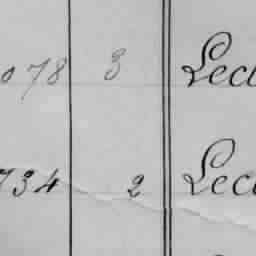 078 3 Lect
734 2 Lect